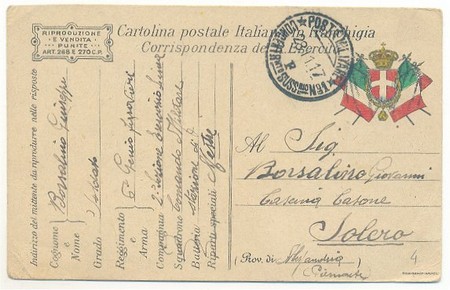 RIPRODUZIONE
E VENDITA
PUNITE
ART. 268 E 270 C.P.
Cartolina postale Italiana in franchigia
Corrispondenza del R. Esercito
POSTA MILITARE
1.17
Indirizzo del mittente da riprodurre nelle risposte
Cognome e Nome Borsalino Giuseppe
Grado Soldato
Reggimento o Arma 6° Genio Ferrovieri
Compagnia 2ª Sezione
Squadrone Comando Militare
Batteria Stazione di
Riparti speciali Mestre
Al Sig.
Borsalino Giovanni
Cascina Casone
Solero
(Prov. di Alessandria)
Piemonte
4